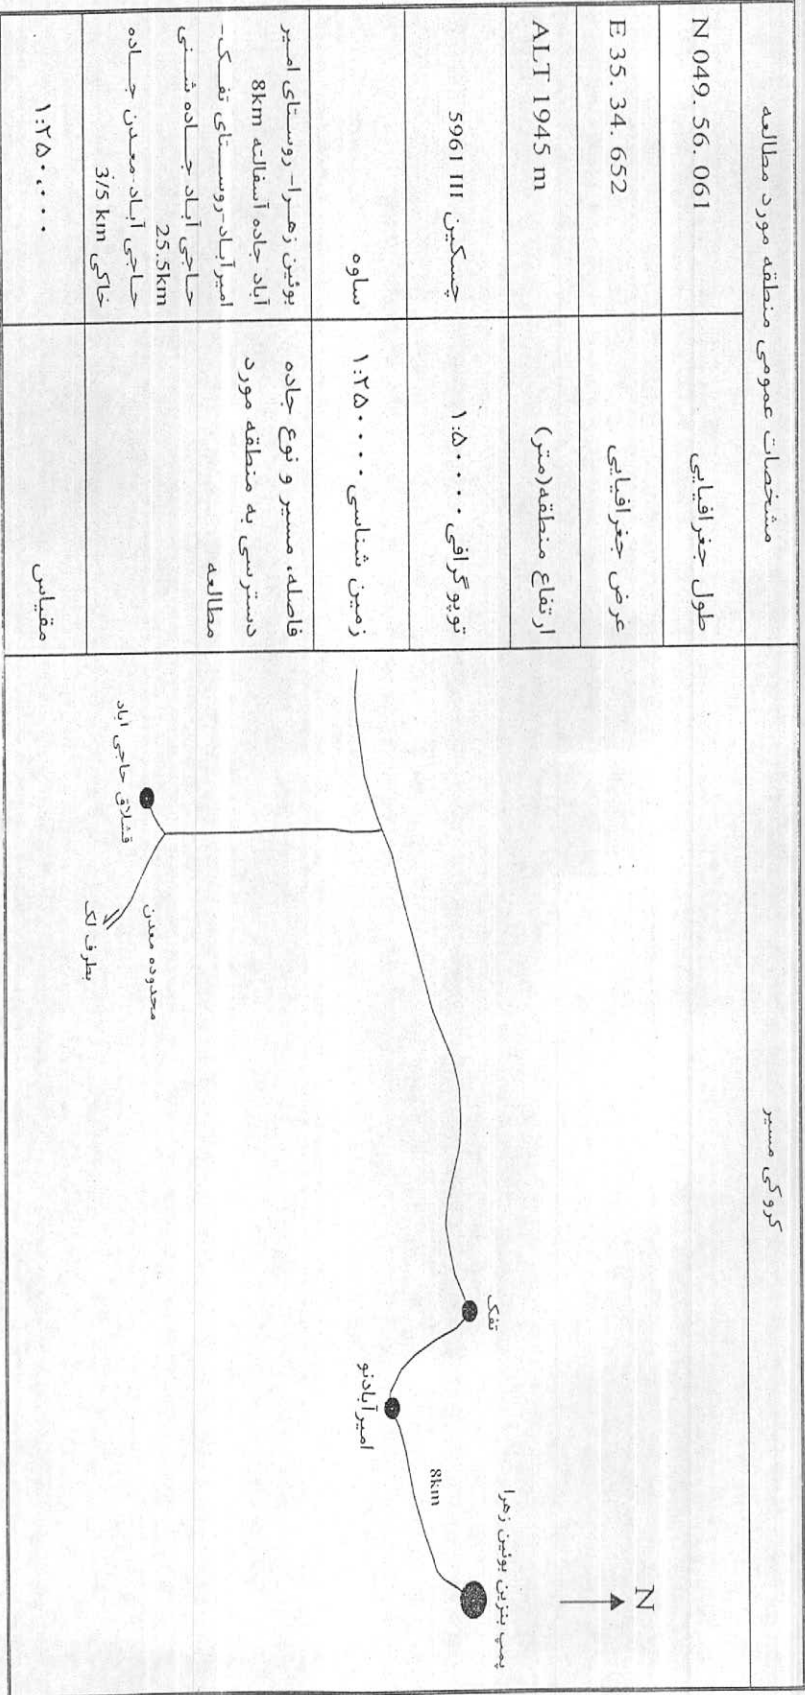 مشخصات عمومی منطقه مورد مطالعه
کروکی مسیر
طول جغرافیایی
N 049. 56. 061
عرض جغرافیایی
E 35. 34. 652
ارتفاع منطقه(متر)
ALT 1945 m
توپوگرافی ۱:۵۰۰۰۰
چسکین 5961 III
زمین شناسی ۱:۲۵۰۰۰۰
ساوه
فاصله، مسیر و نوع جاده
دسترسی به منطقه مورد
مطالعه
بوئین زهرا- روستای امیر
آباد جاده آسفالته 8km
امیرآباد-روستای تفک-
حاجی آباد جاده شنی
25.5km
حاجی آباد-معدن جاده
خاکی 3/5 km
مقیاس
۱:۲۵۰،۰۰۰
N
پمپ بنزین بوئین زهرا
8km
امیرآبادنو
تفک
محدوده معدن
بطرف لک
قشلاق حاجی اباد